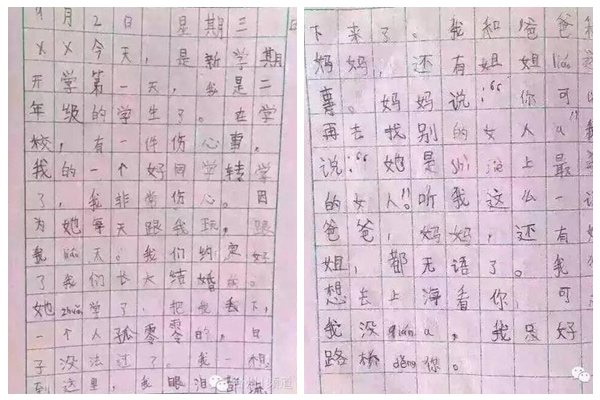 9月2日 星期三
XX今天，是新学期
开学第一天，我是二
年级的学生了。在学
校，有一件伤心事。
我的一个好同学转学
了，我非常伤心。因
为她每天跟我玩，跟
我liáo天。我们约定好
了我们长大结婚的。
她zhuǎn学了，把我丢下，
一个人孤零零的，日
子没法过了。我一想
到这里，我眼泪都流
下来了。我和爸爸和
妈妈，还有姐姐
事。妈妈说：“你可
再去找别的女人a”
说：“她是shì jiè上最
的女人！”听我这么一说
爸爸，妈妈，还有
姐，都无语了。我
想去上海看你，可
我没qián a，我只好
路桥děng你。